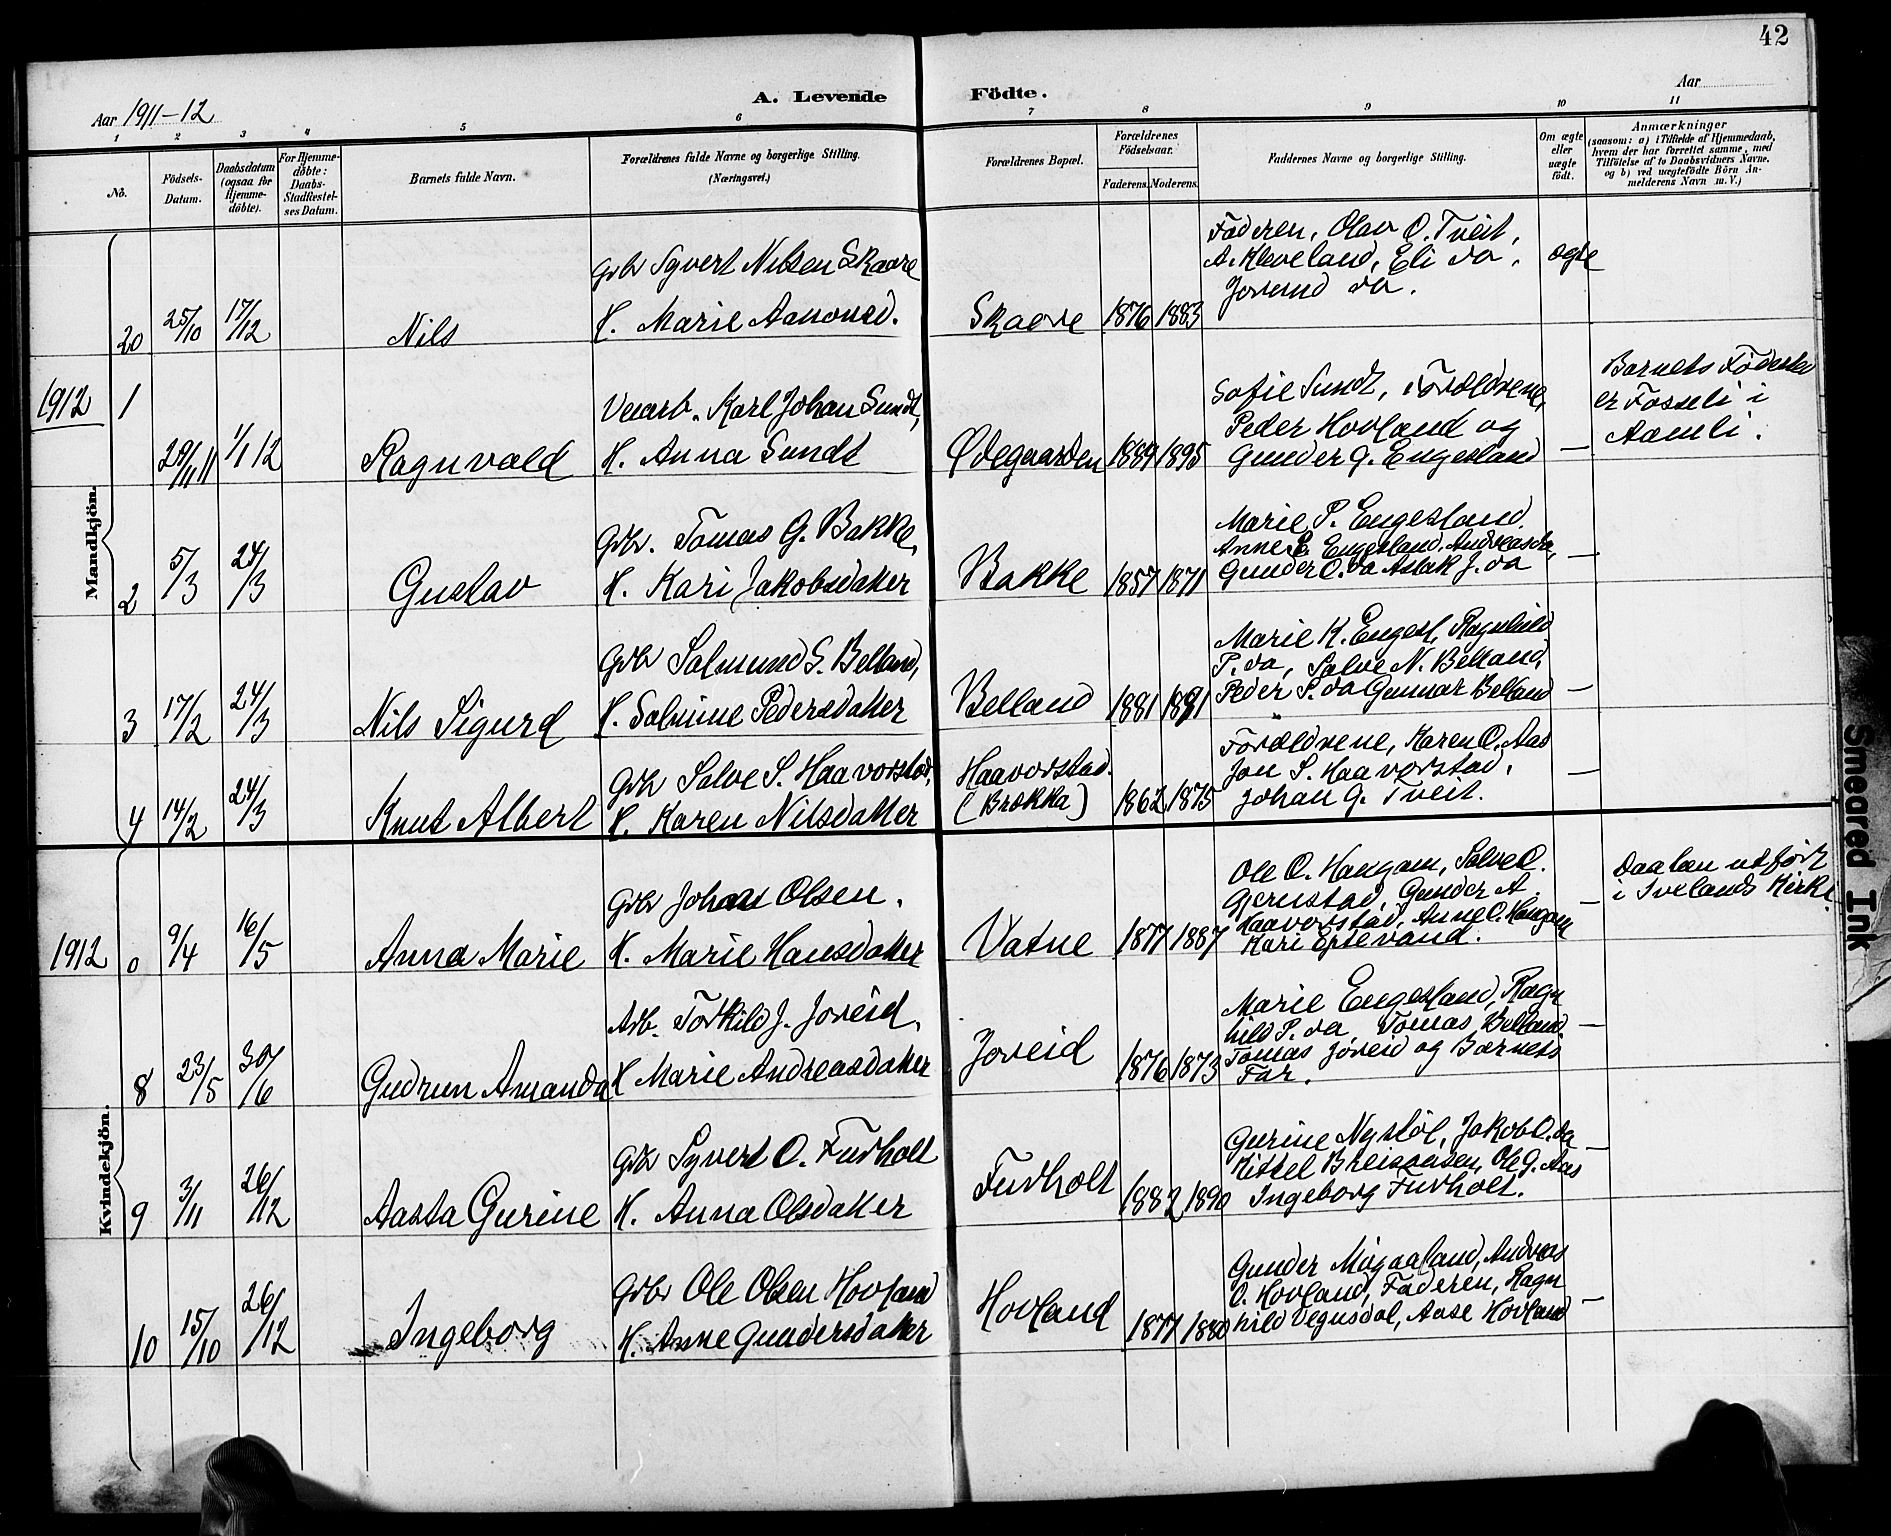 42
Aar 1911-12
A. Levende Födte.
Aar
1 2 3 4 5 6 7 8 9 10 11
No.
Födsels-Datum.
Daabsdatum (ogsaa for Hjemme-döbte).
For Hjemme-döbte: Daabs-Stadfæstel-ses Datum.
Barnets fulde Navn.
Forældrenes fulde Navne og borgerlige Stilling.
(Næringsvei.)
Forældrenes Bopæl.
Forældrenes Födselsaar.
Faderens. Moderens.
Faddernes Navne og borgerlige Stilling.
Om ægte eller uægte födt.
Anmærkninger
(saasom: a) i Tilfælde af Hjemmedaab,
hvem der har forrettet samme, med
Tilföielse af to Daabsvidners Navne.
og b) ved uægtefödte Börn An-
melderens Navn m. V.)
Mandkjön.
20 25/10 17/12 Nils
Gbr Syvert Nilsen Skaare
H. Marie Aanonsd.
Skaare 1876 1883
Faderen, Olav O. Tveit,
A. Kleveland, Eli do,
Jorund do.
ægte
1912 1 29/11 11 1/1 12 Ragnvald
Veiarb. Karl Johan Sundt,
H. Anna Sundt
Ødegaarden 1889 1895
Sofie Sundt, Forældrene,
Peder Hovland og
Gunder G. Engesland
—
Barnets Födested
er Fosseli i
Aamli.
2 5/3 24/3 Gustav
Gbr. Tomas G. Bakke,
H. Kari Jakobsdatter
Bakke 1857 1871
Marie P. Engesland
Anne E. Engesland, Andreas do,
Gunder O. do Aslak J. do
—
3 17/2 24/3 Nils Sigurd
Gbr Salmund S. Belland,
H. Salmine Pedersdatter
Belland 1881 1891
Marie K. Engesl, Ragnhild
P. do, Salve N. Belland,
Peder S. do Gunnar Belland
—
4 14/2 24/3 Knut Albert
Gbr Salve S. Haavorstad,
H. Karen Nilsdatter
Haavorstad.
(Brækka) 1862 1875
Forældrene, Karen O. Aas
Jon S. Haavorstad,
Johan G. Tveit.
—
Kvindekjön.
1912 0 9/4 16/5 Anna Marie
Gbr Johan Olsen.
H. Marie Hansdatter
Vatne 1877 1887
Ole O. Haugom, Salve O.
Gjerustad, Gunder A.
Haavorsstad, Anne O. Haugom
Kari Eptevand.
—
Daaben utfört
i Ivelands Kirke.
8 23/5 30/6 Gudrun Amanda
Arb. Torkild J. Joveid,
H Marie Andreasdatter
Joveid 1876 1873
Marie Engesland, Ragn
hild P. do, Tomas Belland
Tomas Joveid og Barnets
Far.
—
9 3/11 26/12 Aasta Gurine
Gbr Syvert O. Furholt
H. Anna Olsdatter
Furholt 1882 1890
Gurine Nystöl, Jakob O. do
Kittel Breisaasen, Ole G. Aas
Ingeborg Furholt.
—
10 15/10 26/12 Ingeborg
Gbr Ole Olsen Hovland
H. Anne Gundersdatter
Hovland 1877 1880
Gunder Mögaaland, Andreas
O. Hovland, Faderen, Ragn
hild Vegusdal, Aase Hovland
—
Smeared Ink